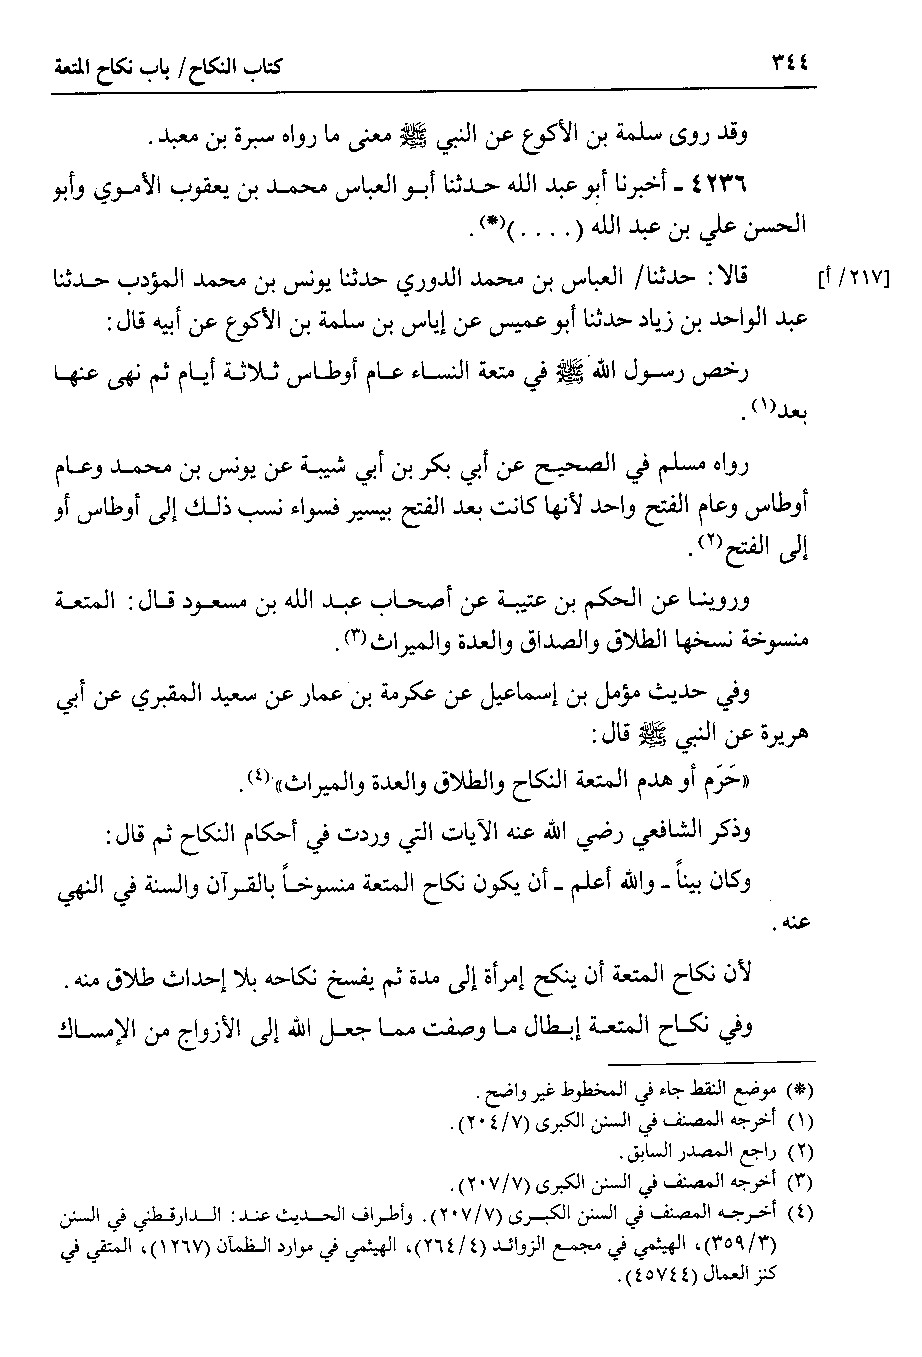 ٣٤٤ كتاب النكاح/ باب نكاح المتعة
وقد روى سلمة بن الأكوع عن النبي ﷺ معنى ما رواه سبرة بن معبد.
٤٢٣٦ - أخبرنا أبو عبد الله حدثنا أبو العباس محمد بن يعقوب الأموي وأبو
الحسن علي بن عبد الله (. . . .)(*).
[٢١٧/ أ] قالا: حدثنا/ العباس بن محمد الدوري حدثنا يونس بن محمد المؤدب حدثنا
عبد الواحد بن زياد حدثنا أبو عميس عن إياس بن سلمة بن الأكوع عن أبيه قال:
رخص رسول الله ﷺ في متعة النساء عام أوطاس ثلاثة أيام ثم نهى عنها
بعد(١).
رواه مسلم في الصحيح عن أبي بكر بن أبي شيبة عن يونس بن محمد وعام
أوطاس وعام الفتح واحد لأنها كانت بعد الفتح بيسير فسواء نسب ذلك إلى أوطاس أو
إلى الفتح(٢).
وروينا عن الحكم بن عتيبة عن أصحاب عبد الله بن مسعود قال: المتعة
منسوخة نسخها الطلاق والصداق والعدة والميراث(٣).
وفي حديث مؤمل بن إسماعيل عن عكرمة بن عمار عن سعيد المقبري عن أبي
هريرة عن النبي ﷺ قال:
«حَرَّم أو هدم المتعة النكاح والطلاق والعدة والميراث»(٤).
وذكر الشافعي رضي الله عنه الآيات التي وردت في أحكام النكاح ثم قال:
وكان بيناً - والله أعلم - أن يكون نكاح المتعة منسوخاً بالقرآن والسنة في النهي
عنه.
لأن نكاح المتعة أن ينكح إمرأة إلى مدة ثم يفسخ نكاحه بلا إحداث طلاق منه.
وفي نكاح المتعة إبطال ما وصفت مما جعل الله إلى الأزواج من الإمساك
(*) موضع النقط جاء في المخطوط غير واضح.
(١) أخرجه المصنف في السنن الكبرى (٢٠٤/٧).
(٢) راجع المصدر السابق.
(٣) أخرجه المصنف في السنن الكبرى (٢٠٧/٧).
(٤) أخرجه المصنف في السنن الكبرى (٢٠٧/٧). وأطراف الحديث عند: الدارقطني في السنن
(٣٥٩/٣)، الهيثمي في مجمع الزوائد (٢٦٤/٤)، الهيثمي في موارد الظمآن (١٢٦٧)، المتقي في
كنز العمال (٤٥٧٤٤).